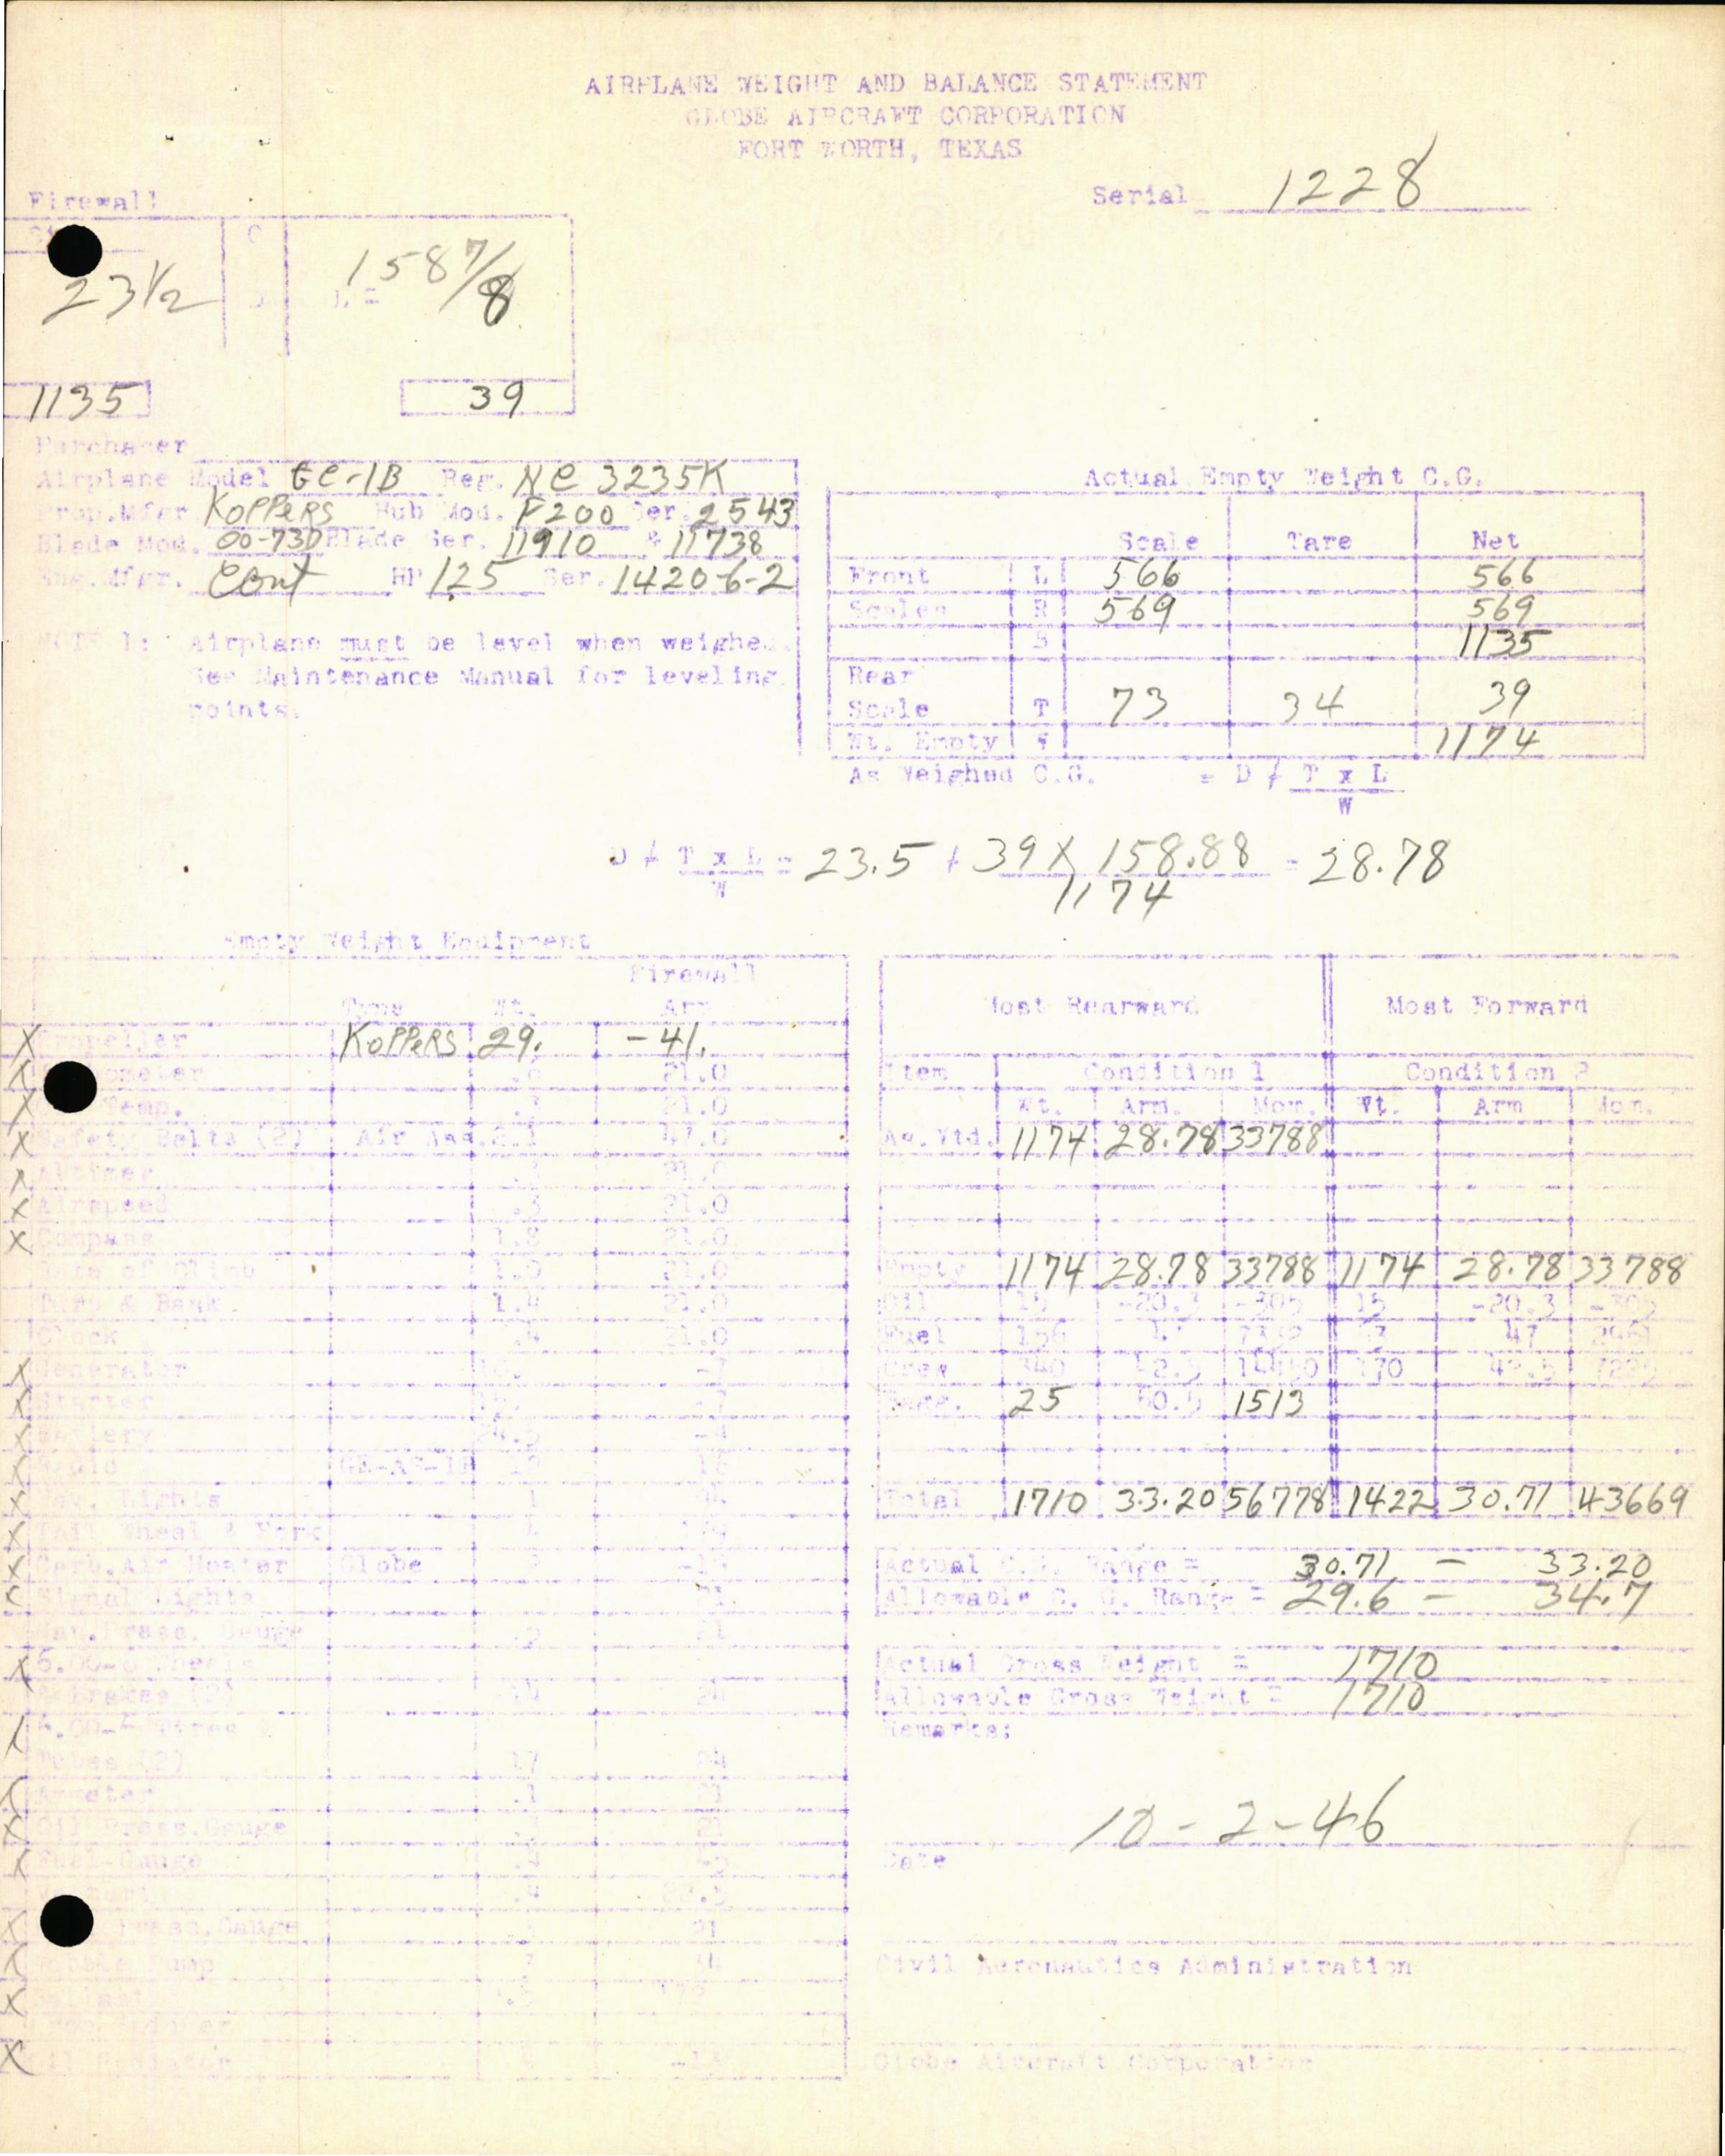 AIRPLANE WEIGHT AND BALANCE STATEMENT
GLOBE AIRCRAFT CORPORATION
FORT WORTH, TEXAS
Serial 1228
Firewall
C
23 1/2
L = 158 7/8
1135
39
Purchaser
Airplane Model GC-1B Reg. NC 3235K
Prop.Mfgr KOPPERS Hub Mod. F200 Ser. 2543
Blade Mod. 00-73D Blade Ser. 11910 & 11738
Eng.Mfgr. Cont HP 125 Ser. 1420-6-2
NOTE 1: Airplane must be level when weighed.
See Maintenance Manual for leveling
points.
Actual Empty Weight C.G.
Scale Tare Net
Front L 566 566
Scales R 569 569
S 1135
Rear
Scale T 73 34 39
Wt. Empty W 1174
As Weighed C.G. = D + T x L
W
D + T x L = 23.5 + 39 X 158.88 = 28.78
W 1174
Empty Weight Equipment
Firewall
Type Wt. Arm
X Propeller KOPPERS 29. -41.
21.0
X Temp. 21.0
X Safety Belts (2) Air Ass. 2.1 47.0
Altimer
X Airspeed .3 21.0
X Compass 21.0
Rate of Climb
Turn & Bank 1.4 21.0
Clock .4 21.0
X Generator
X Starter
X Battery
X Radio
X Nav. Lights
X Tail Wheel & Fork
X Carb.Air Heater Globe
Signal Lights
Man.Press. Gauge 21
X 6.00-6 Wheels
& Brakes (2)
Tires
Tubes (2) 17 24
Ammeter .1 21
X Oil Press.Gauge 21
X Fuel Gauge
X Press.Gauge 21
X Wobble Pump
X Ballast
X Oil Radiator -13
Most Rearward Most Forward
Item Condition 1 Condition 2
Wt. Arm. Mom. Wt. Arm Mom.
As.Wtd. 1174 28.78 33788
Empty 1174 28.78 33788 1174 28.78 33788
Oil 15 -20.3 -305 15 -20.3 -305
Fuel 156 47 7332 47
Crew 340 42.5 14450 170 42.5
Bagg. 25 60.5 1513
Total 1710 33.20 56778 1422 30.71 43669
Actual C.G. Range = 30.71 - 33.20
Allowable C. G. Range = 29.6 - 34.7
Actual Gross Weight = 1710
Allowable Gross Weight = 1710
Remarks:
10-2-46
Date
Civil Aeronautics Administration
Globe Aircraft Corporation